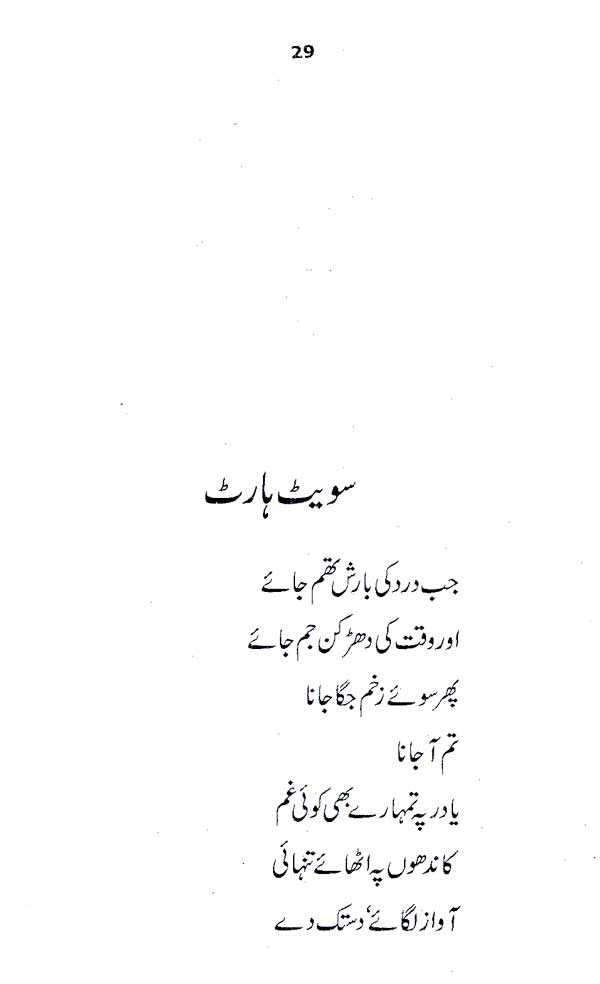 29
سویٹ ہارٹ
جب درد کی بارش تھم جائے
اور وقت کی دھڑکن جم جائے
پھر سوئے زخم جگا جانا
تم آ جانا
یا در پہ تمہارے بھی کوئی غم
کاندھوں پہ اٹھائے تنہائی
آواز لگائے‘ دستک دے